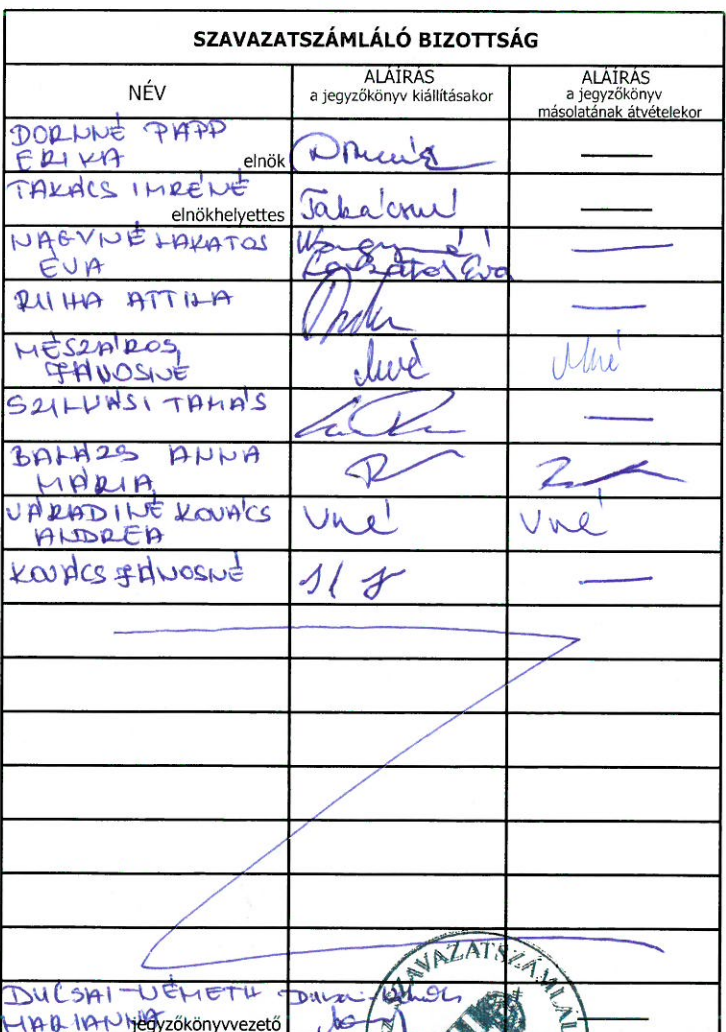 SZAVAZATSZÁMLÁLÓ BIZOTTSÁG
NÉV
ALÁÍRÁS
a jegyzőkönyv kiállításakor
ALÁÍRÁS
a jegyzőkönyv
másolatának átvételekor
DORNNÉ PAPP
ERIKA elnök
TAKÁCS IMRÉNÉ
elnökhelyettes Takácsné
NAGYNÉ LAKATOS
ÉVA
Nagyné
Lakatos Éva
ATTILA
MÉSZÁROS
JÁNOSNÉ
Mné
SZILVÁSI TAMÁS
BALÁZS ANNA
MÁRIA
VÁRADINÉ KOVÁCS
ANDREA
Vné Vné
KOVÁCS JÁNOSNÉ
DUCSAI-NÉMETH
MARIANNA jegyzőkönyvvezető